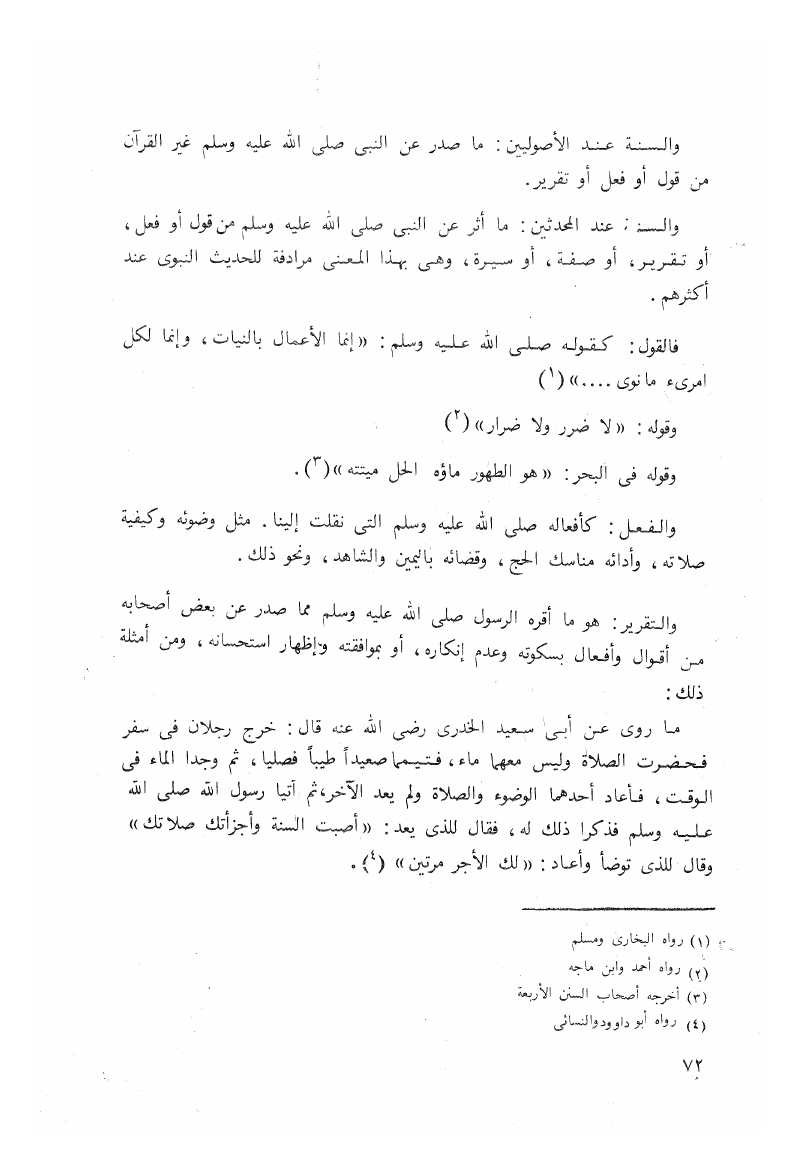 والسنة عند الأصوليين: ما صدر عن النبى صلى الله عليه وسلم غير القرآن
من قول أو فعل أو تقرير.
والسنة عند المحدثين: ما أثر عن النبى صلى الله عليه وسلم من قول أو فعل،
أو تقرير، أو صفة، أو سيرة، وهى بهذا المعنى مرادفة للحديث النبوى عند
أكثرهم.
فالقول: كقوله صلى الله عليه وسلم: «إنما الأعمال بالنيات، وإنما لكل
امرىء ما نوى ....» (١)
وقوله: «لا ضرر ولا ضرار» (٢)
وقوله فى البحر: «هو الطهور ماؤه الحل ميتته» (٣).
والفعل: كأفعاله صلى الله عليه وسلم التى نقلت إلينا. مثل وضوئه وكيفية
صلاته، وأدائه مناسك الحج، وقضائه باليمين والشاهد، ونحو ذلك.
والتقرير: هو ما أقره الرسول صلى الله عليه وسلم مما صدر عن بعض أصحابه
من أقوال وأفعال بسكوته وعدم إنكاره، أو بموافقته وإظهار استحسانه، ومن أمثلة
ذلك:
ما روى عن أبى سعيد الخدرى رضى الله عنه قال: خرج رجلان فى سفر
فحضرت الصلاة وليس معهما ماء، فتيمما صعيداً طيباً فصليا، ثم وجدا الماء فى
الوقت، فأعاد أحدهما الوضوء والصلاة ولم يعد الآخر، ثم أتيا رسول الله صلى الله
عليه وسلم فذكرا ذلك له، فقال للذى يعد: «أصبت السنة وأجزأتك صلاتك»
وقال للذى توضأ وأعاد: «لك الأجر مرتين» (٤).
(١) رواه البخارى ومسلم
(٢) رواه أحمد وابن ماجه
(٣) أخرجه أصحاب السنن الأربعة
(٤) رواه أبو داوود والنسائى
٧٢